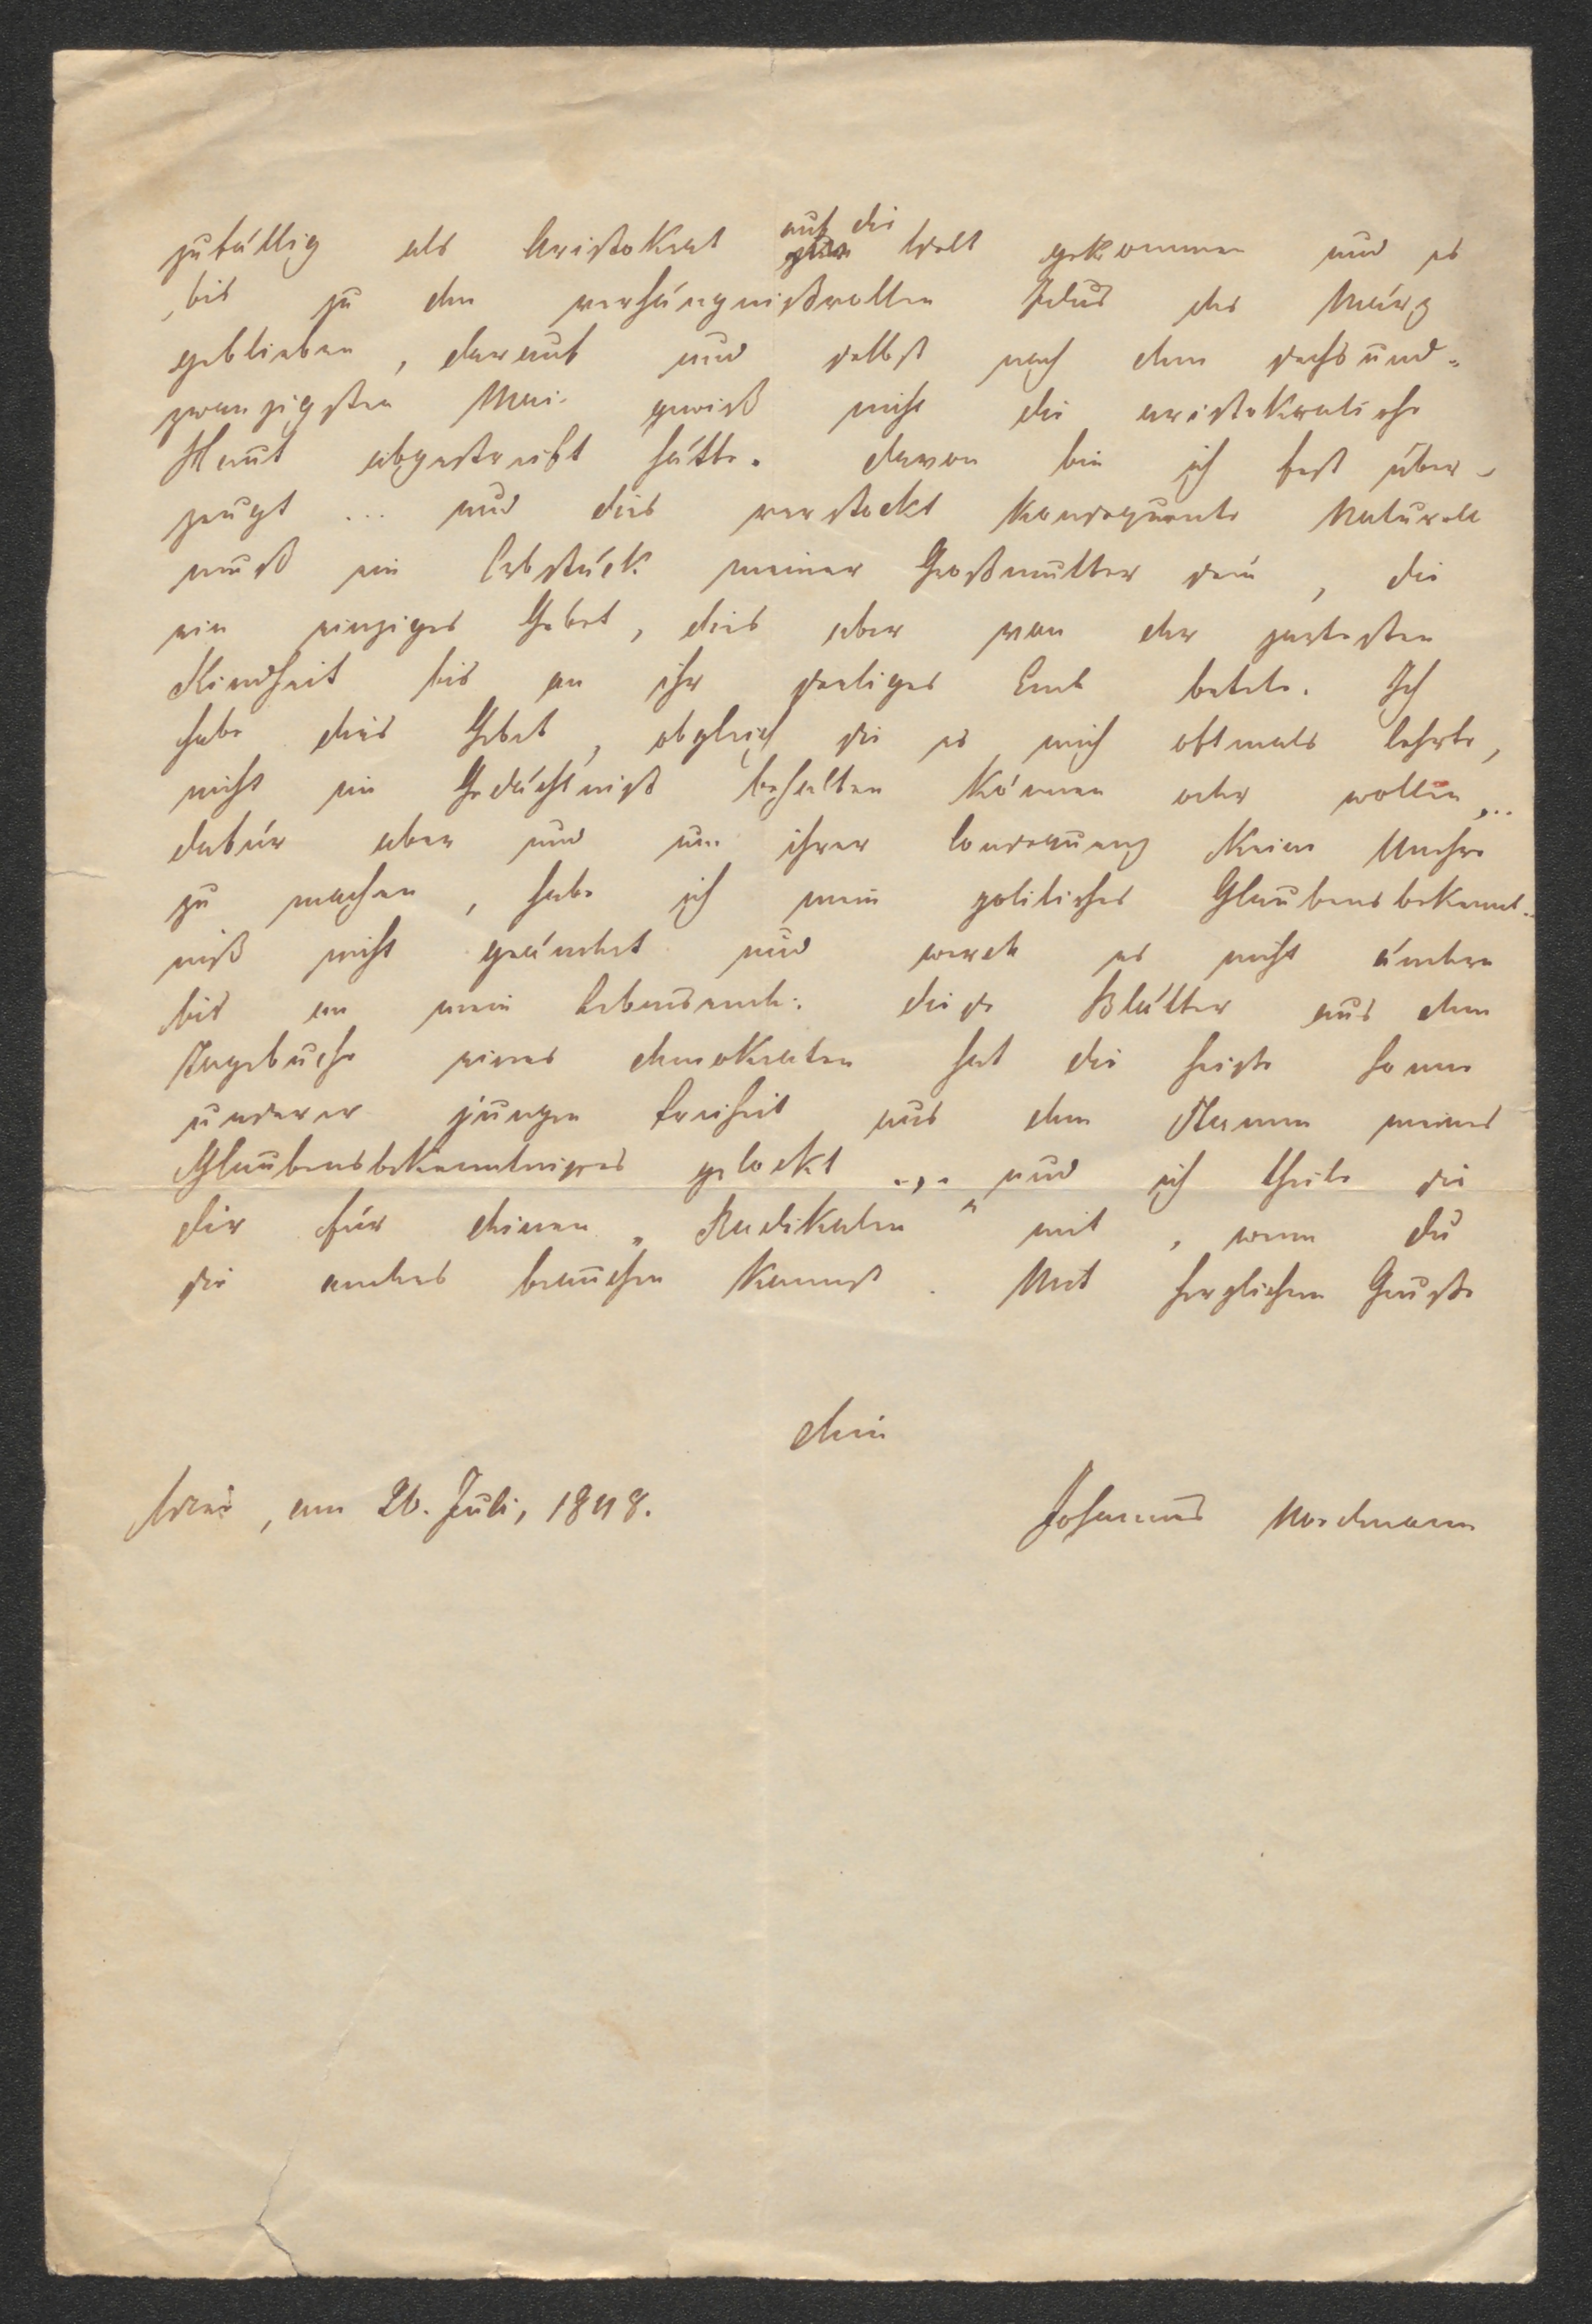 zufällig als Aristokrat auf die Welt gekommen und es
bis zu den verhängnißvollen Idus des März
geblieben, darauf und selbst nach dem sechsund-
zwanzigsten Mai gewiß nicht die aristokratische
Haut abgestreift hätte. davon bin ich fest über-
zeugt ... und dies verstockt konsequente Naturell
muß ein Erbstück meiner Großmutter sein, die
ein einziges Gebet, dies aber von der zartesten
Kindheit bis an ihr seeliges Ende betete. Ich
habe dies Gebet, obgleich sie es mich oftmals lehrte,
nicht im Gedächtniß behalten können oder wollen...
dafür aber und um ihrer Consequenz keine Unehre
zu machen, habe ich mein politisches Glaubensbekennt-
niß nicht geändert und werde es nicht ändern
bis an mein Lebensende. diese Blätter aus dem
Tagebuche eines demokraten hat die heiße Sonne
unserer jungen Freiheit aus dem Stamm meines
Glaubensbekenntnisses gelockt ... und ich theile sie
dir für deinen „Radikalen" mit, wenn du
sie anders brauchen kannst. Mit herzlichem Gruße
dein
Wien, am 26. Juli, 1848.
Johannes Nordmann